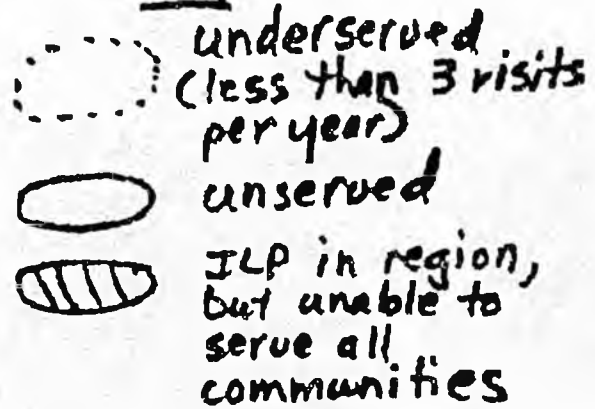 underserved
(less than 3 visits
per year)
unserved
ILP in region,
but unable to
serve all
communities